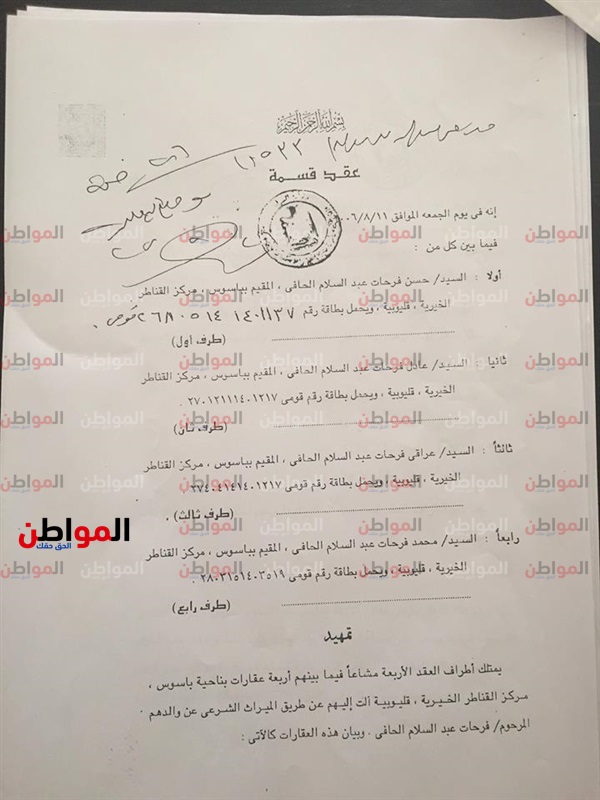 بسم الله الرحمن الرحيم
١٢٥٣٣
عقد قسمة
إنه فى يوم الجمعه الموافق ٠٦/٨/١١
فيما بين كل من :
أولا : السيد/ حسن فرحات عبد السلام الحافى ، المقيم بباسوس ، مركز القناطر
الخيرية ، قليوبية ، ويحمل بطاقة رقم
(طرف أول)
ثانيا : السيد/ عادل فرحات عبد السلام الحافى ، المقيم بباسوس ، مركز القناطر
الخيرية ، قليوبية ، ويحمل بطاقة رقم قومى ٢٧٠١٢١١١٤٠١٢١٧ .
(طرف ثان)
ثالثاً : السيد/ عراقى فرحات عبد السلام الحافى ، المقيم بباسوس ، مركز القناطر
الخيرية ، قليوبية ، ويحمل بطاقة رقم قومى ٢٧٤٠٤١٤١٤٠١٢١٧ .
(طرف ثالث) .
المواطن
الحق حقك
رابعاً : السيد/ محمد فرحات عبد السلام الحافى ، المقيم بباسوس ، مركز القناطر
الخيرية ، قليوبية ، ويحمل بطاقة رقم قومى ٢٨٠٣١٥١٤٠٣٥١٩ .
(طرف رابع)
تمهيد
يمتلك أطراف العقد الأربعة مشاعاً فيما بينهم أربعة عقارات بناحية باسوس ،
مركز القناطر الخيرية ، قليوبية آلت إليهم عن طريق الميراث الشرعى عن والدهم
المرحوم/ فرحات عبد السلام الحافى . وبيان هذه العقارات كالآتى :